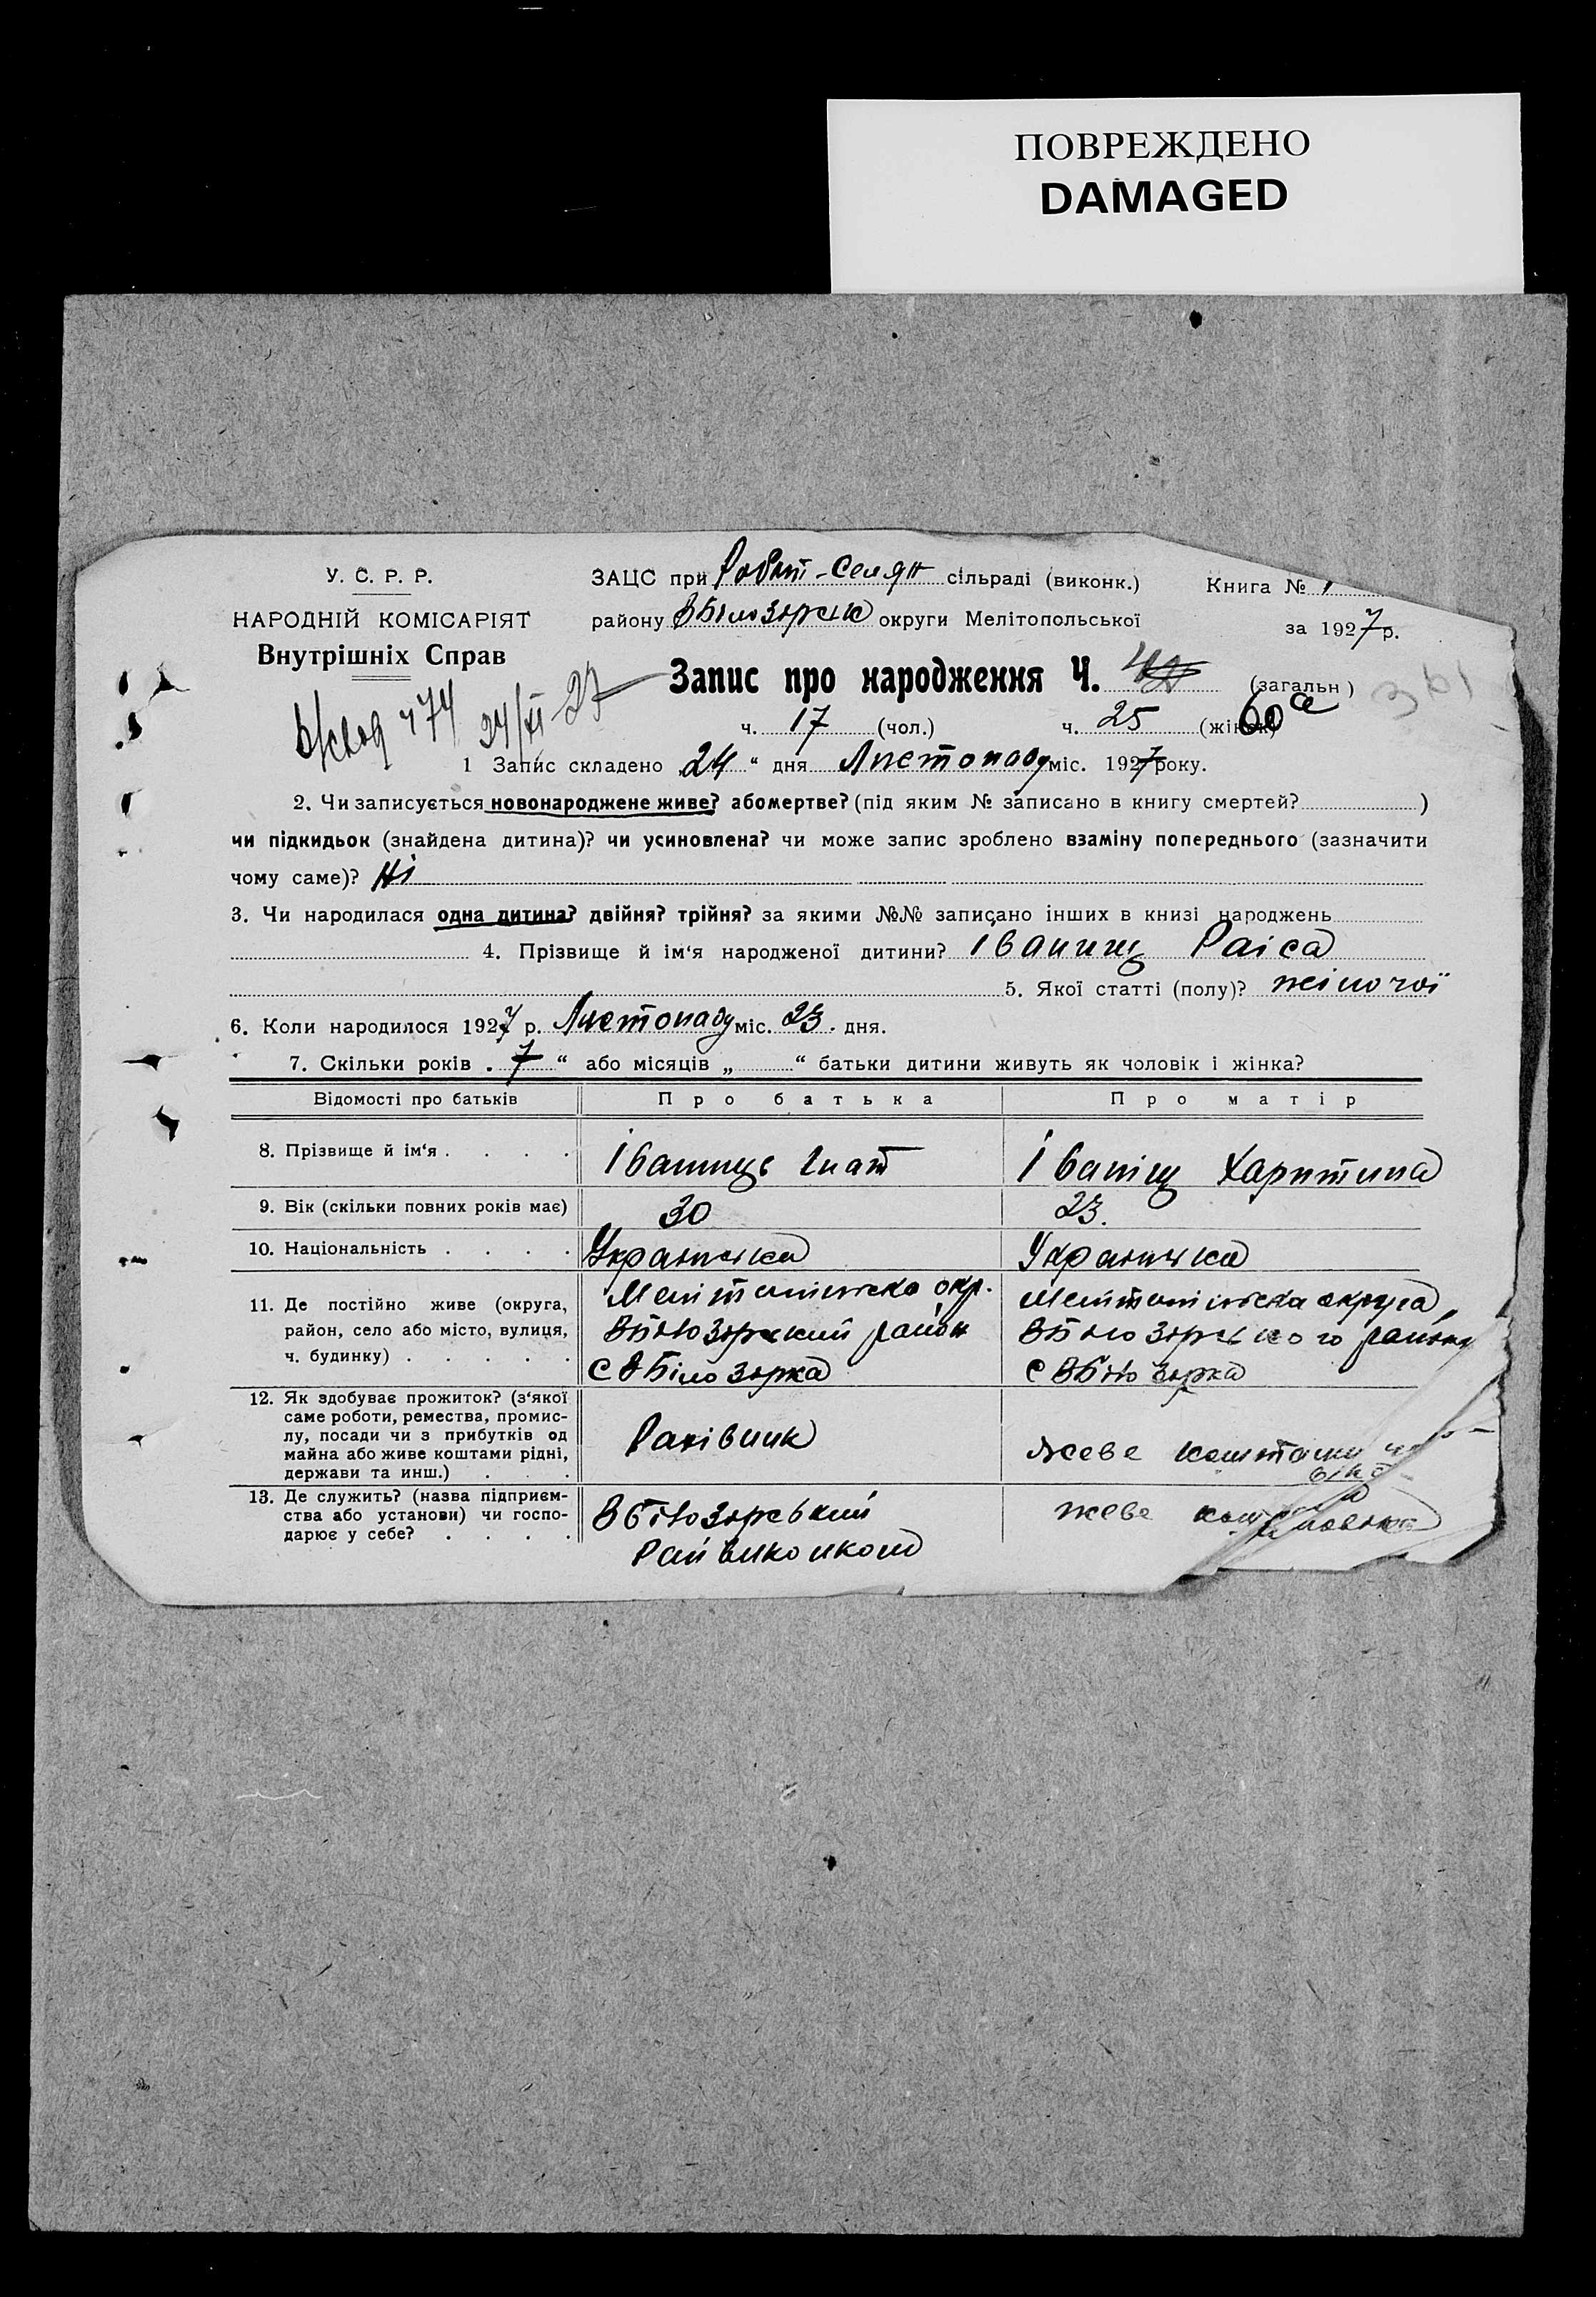 ПОВРЕЖДЕНО
DAMAGED
У. С. Р. Р.
НАРОДНІЙ КОМІСАРІЯТ
Внутрішніх Справ
ЗАЦС при Робіт-Селян сільраді (виконк.)
Книга №
району ВБілозірськ округи Мелітопольської
за 1927 р.
Запис про народження Ч. 42 (загальн)
174 24/XI-27
ч. 17 (чол.) ч. 25 (жінок)
60
1 Запис складено 24 “ дня Листопаду міс. 1927 року.
2. Чи записується новонароджене живе? або мертве? (під яким № записано в книгу смертей? )
чи підкидьок (знайдена дитина)? чи усиновлена? чи може запис зроблено взаміну попереднього (зазначити
чому саме)? Ні
3. Чи народилася одна дитина? двійня? трійня? за якими №№ записано інших в книзі народжень
4. Прізвище й ім‘я народженої дитини? Іваниц Раіса
5. Якої статті (полу)? жіночої
6. Коли народилося 1927 р. Листопаду міс. 23 дня.
7. Скільки років 7 “ або місяців „ “ батьки дитини живуть як чоловік і жінка?
Відомості про батьків Про батька Про матір
8. Прізвище й ім‘я . . . . Іваниць Гнат Іваніц Харитина
9. Вік (скільки повних років має) 30 23.
10. Національність . . . . Українська Українська
11. Де постійно живе (округа, Мелітопільска окр. Мелітопільска округа
район, село або місто, вулиця, ВБілозірський район ВБілозірського району
ч. будинку) . . . . . с ВБілозірка с ВБілозірка
12. Як здобуває прожиток? (з‘якої
саме роботи, ремества, промис-
лу, посади чи з прибутків од Рахівник
майна або живе коштами рідні, живе коштами
держави та инш.) . . .
13. Де служить? (назва підприєм-
ства або установи) чи госпо- ВБілозірський живе
дарює у себе? . . . . Райвиконком